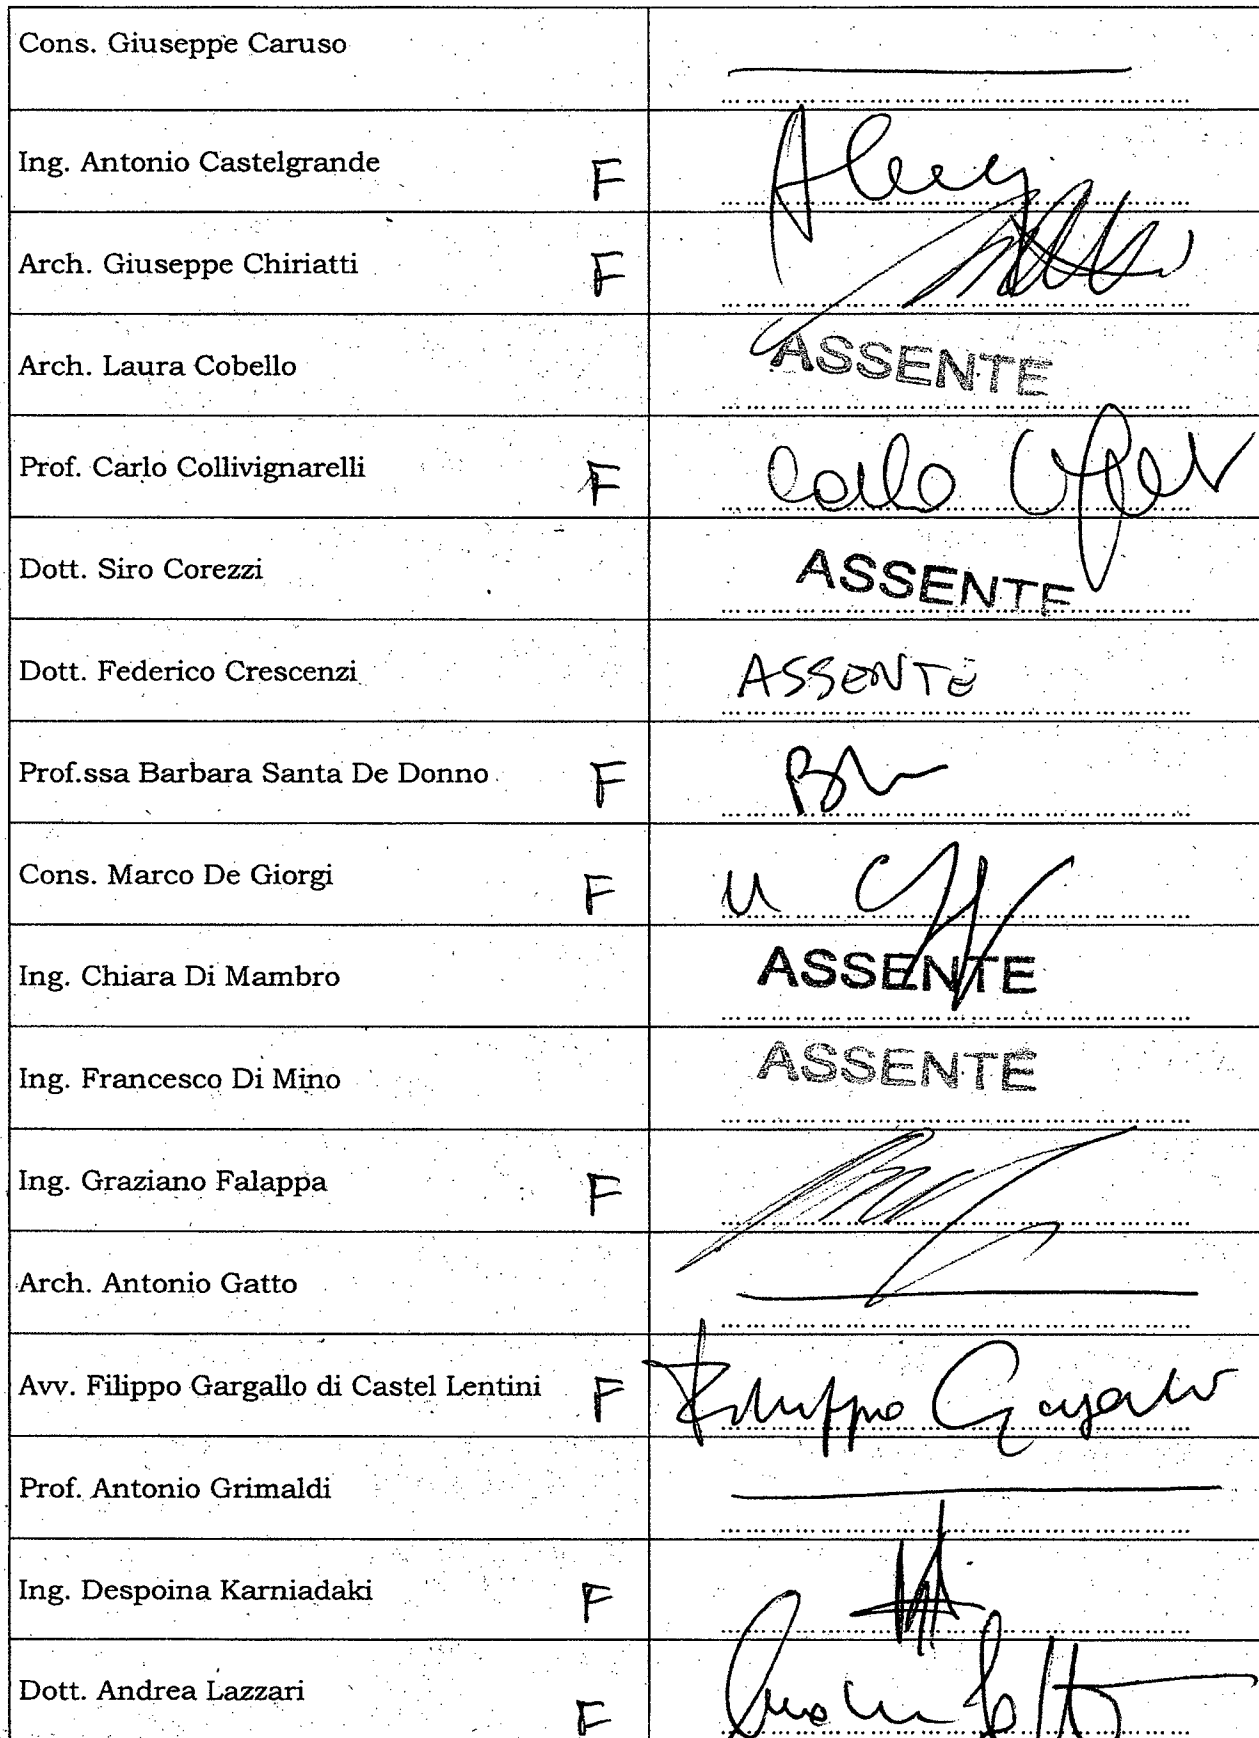 Cons. Giuseppe Caruso
Ing. Antonio Castelgrande F
Arch. Giuseppe Chiriatti F
Arch. Laura Cobello ASSENTE
Prof. Carlo Collivignarelli F Carlo
Dott. Siro Corezzi ASSENTE
Dott. Federico Crescenzi ASSENTE
Prof.ssa Barbara Santa De Donno F
Cons. Marco De Giorgi F
Ing. Chiara Di Mambro ASSENTE
Ing. Francesco Di Mino ASSENTE
Ing. Graziano Falappa F
Arch. Antonio Gatto
Avv. Filippo Gargallo di Castel Lentini F Filippo Gargallo
Prof. Antonio Grimaldi
Ing. Despoina Karniadaki F
Dott. Andrea Lazzari F